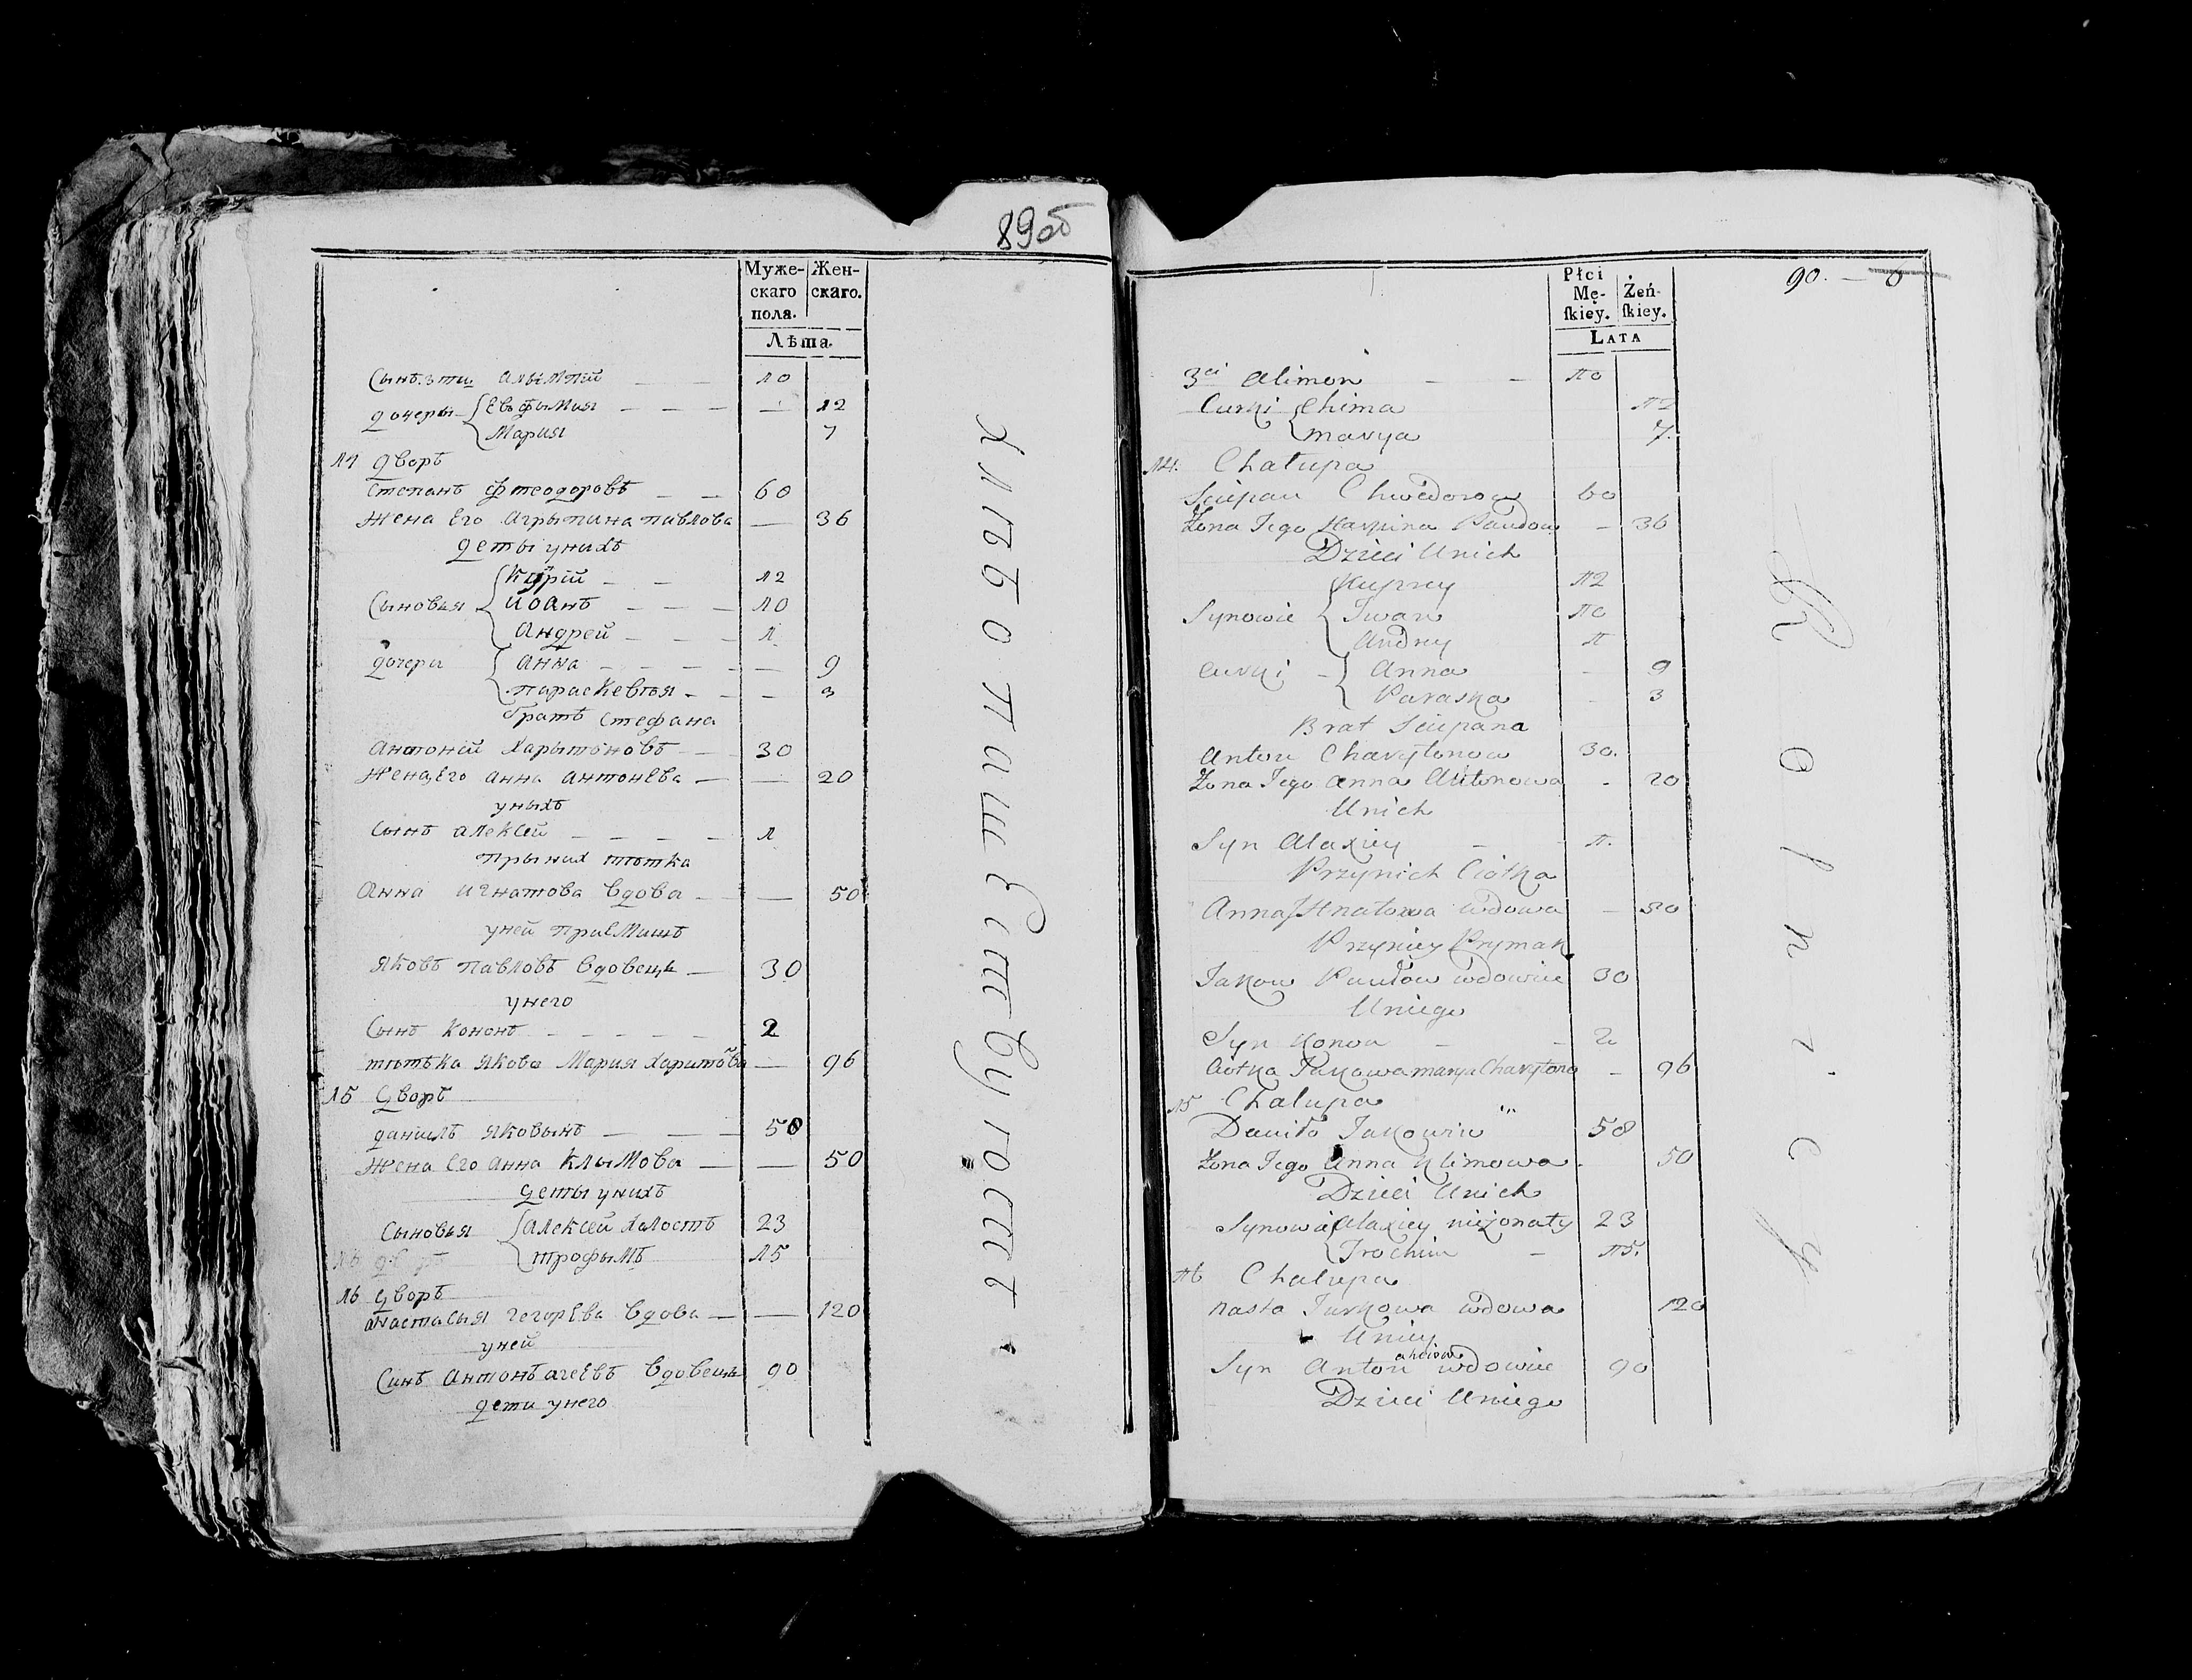 89об
Муже-
скаго
пола.
Жен-
скаго.
Лѣта.
Сынъ 3 ти Алымпій 10
Дочеры Евфымия 12
Мария 7
14 Дворъ
Степанъ Фтеодоровъ 60
Жена Его Агрыпина Павлова 36
Деты унихъ
Купрій 12
Сыновья Иоанъ 10
Андрей 1
Дочери Анна 9
Параскевтья 3
Братъ Стефана
Антоній Харытоновъ 30
Жена Его Анна Антонева 20
уныхъ
Сынъ Алексей 1
Прыних тютка
Анна Игнатова Вдова 50
уней Приемишъ
Яковъ Павловъ Вдовецъ 30
унего
Сынъ Кононъ 2
тютька Якова Мария Харитова 96
15 Дворъ
Даниилъ Яковынъ 58
Жена Его Анна Клымова 50
Деты унихъ
Сыновья Алексей Халостъ 23
Трофымъ 15
16 Дворъ
Анастасыя Гегорева Вдова 120
уней
Синъ Антонъ Агеевъ Вдовецъ 90
Дети унего
Хлѣбопашествуютъ
Płci
Mę-
skiey.
Żeń-
skiey.
Lata
90.
3ci Alimon 10
Curki Chima 12
Marya 7
14. Chałupa
Sciepan Chwedorow 60
Żona Jego Harpina Pawłow 36
Dzieci Unich
Kuprey 12
Synowie Iwan 10
Andrey 1
Curki Anna 9
Paraska 3
Brat Sciepana
Anton Charytonow 30.
Żona Jego Anna Antonowa 20
Unich
Syn Alaxiey 1.
Przynich Ciotka
Anna Hnatowa wdowa 50
Przyniey Prymak
Jakow Pawłow wdowiec 30
Uniego
Syn Konon 2
Ciotka Jakowa Marya Charytono 96
15 Chałupa
Daniło Jakowin 58
Żona Jego Anna Klimowa 50
Dzieci Unich
Synowie Alaxiey nieżonaty 23
Trochim 15.
16 Chałupa
Nasta Jurkowa wdowa 120
Uniey
Syn Anton wdowiec 90
Dzieci Uniego
Rolnicy